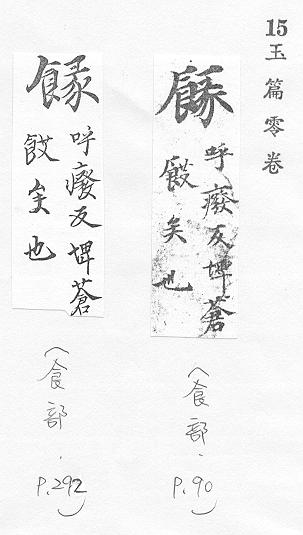 15
玉篇零卷
餯
呼癈反埤蒼
餀矣也
(食部.
P.90)
餯
呼癈反埤蒼
餀矣也
(食部.
P.292)